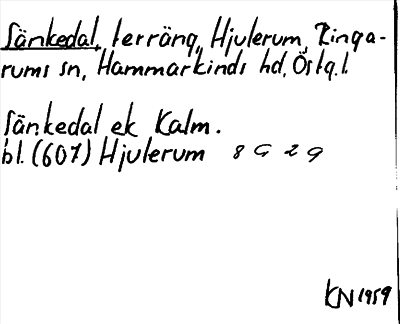 Sänkedal, terräng, Hjulerum, Ringa-
rums sn, Hammarkinds hd, Östg. l.
Sänkedal ek Kalm.
bl. (607) Hjulerum 8 G 2 g
KN 1959